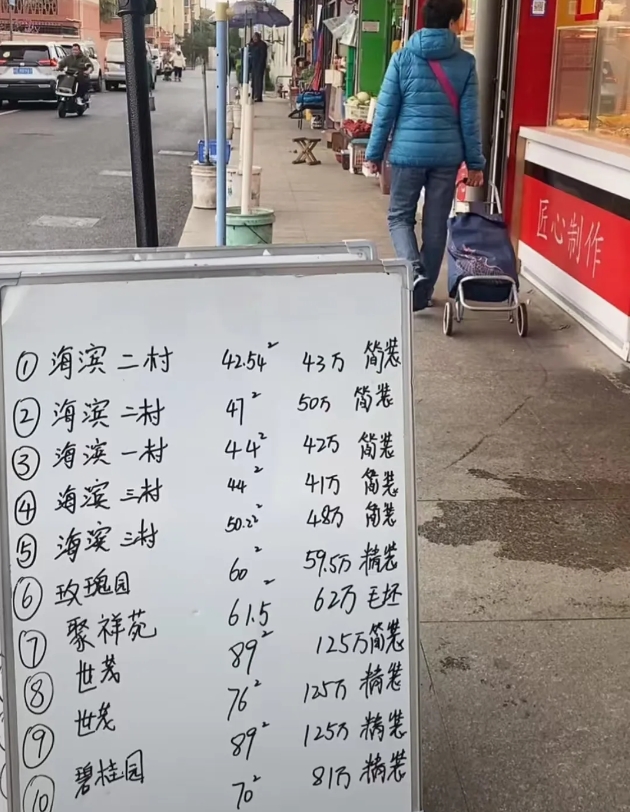 匠心制作
① 海滨二村 42.54² 43万 简装
② 海滨二村 47² 50万 简装
③ 海滨一村 44² 42万 简装
④ 海滨三村 44² 41万 简装
⑤ 海滨三村 50.22² 48万 简装
⑥ 玫瑰园 60² 59.5万 精装
⑦ 聚祥苑 61.5² 62万 毛坯
⑧ 世茂 89² 125万 简装
⑨ 世茂 76² 125万 精装
⑩ 碧桂园 89² 125万 精装
70² 81万 精装